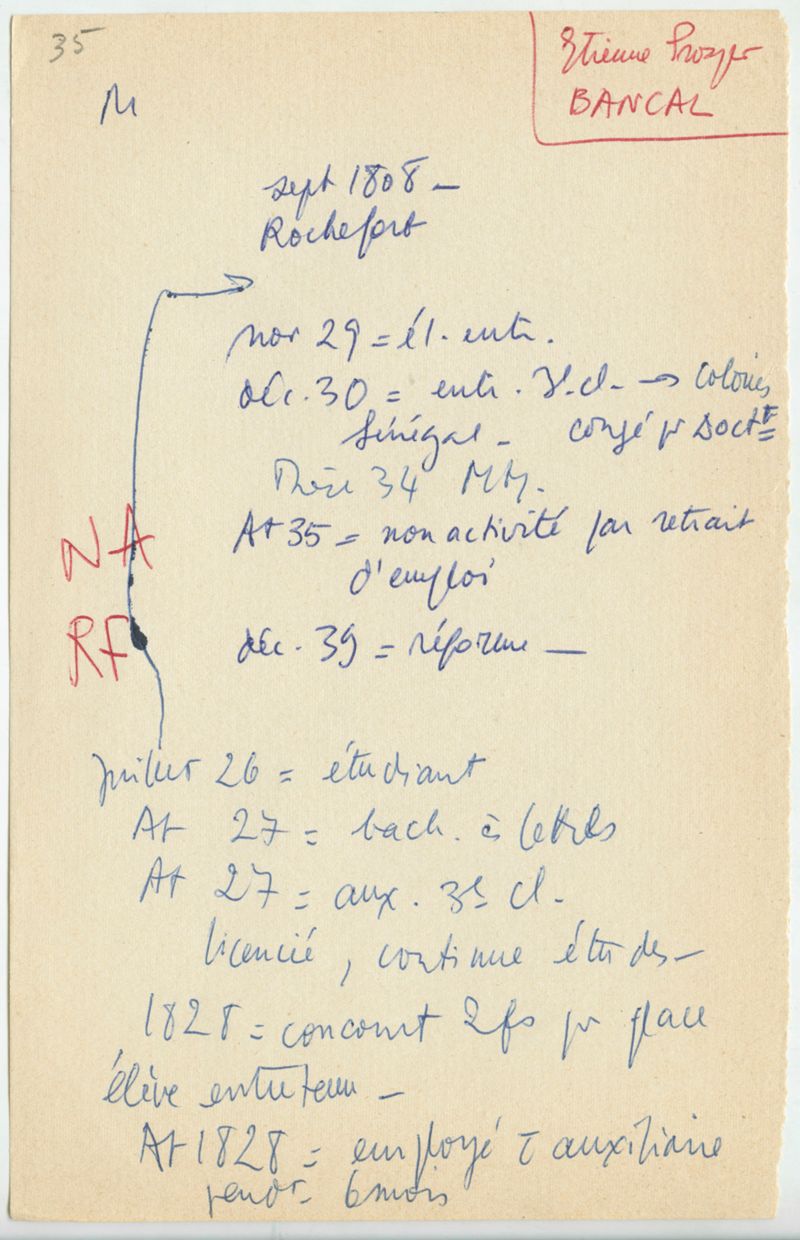 35
Etienne Prosper
BANCAL
M
sept 1808 —
Rochefort
nov 29 = él. entr.
déc. 30 = entr. 3e cl. → Colonies
Sénégal - congé pr Doctt
Thèse 34 MM.
NA
At 35 = non activité par retrait
d'emploi
RF
déc. 39 = réforme —
juillet 26 = étudiant
At 27 = bach. ès lettres
At 27 = aux. 3e cl.
licencié, continue études —
1828 = concourt 2 fs pr place
élève entretenu —
At 1828 = employé c̄ auxiliaire
pendt 6 mois